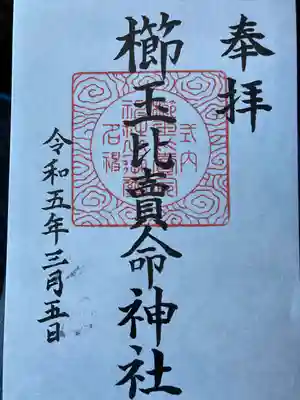 奉拝
櫛玉比賣命神社
式内
令和五年三月五日